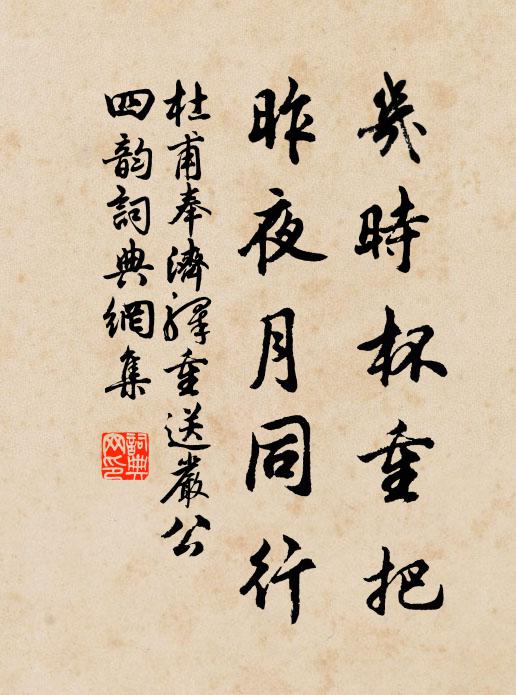 幾時杯重把
昨夜月同行
杜甫奉濟驛重送嚴公
四韵詞典網集
詞典
网印